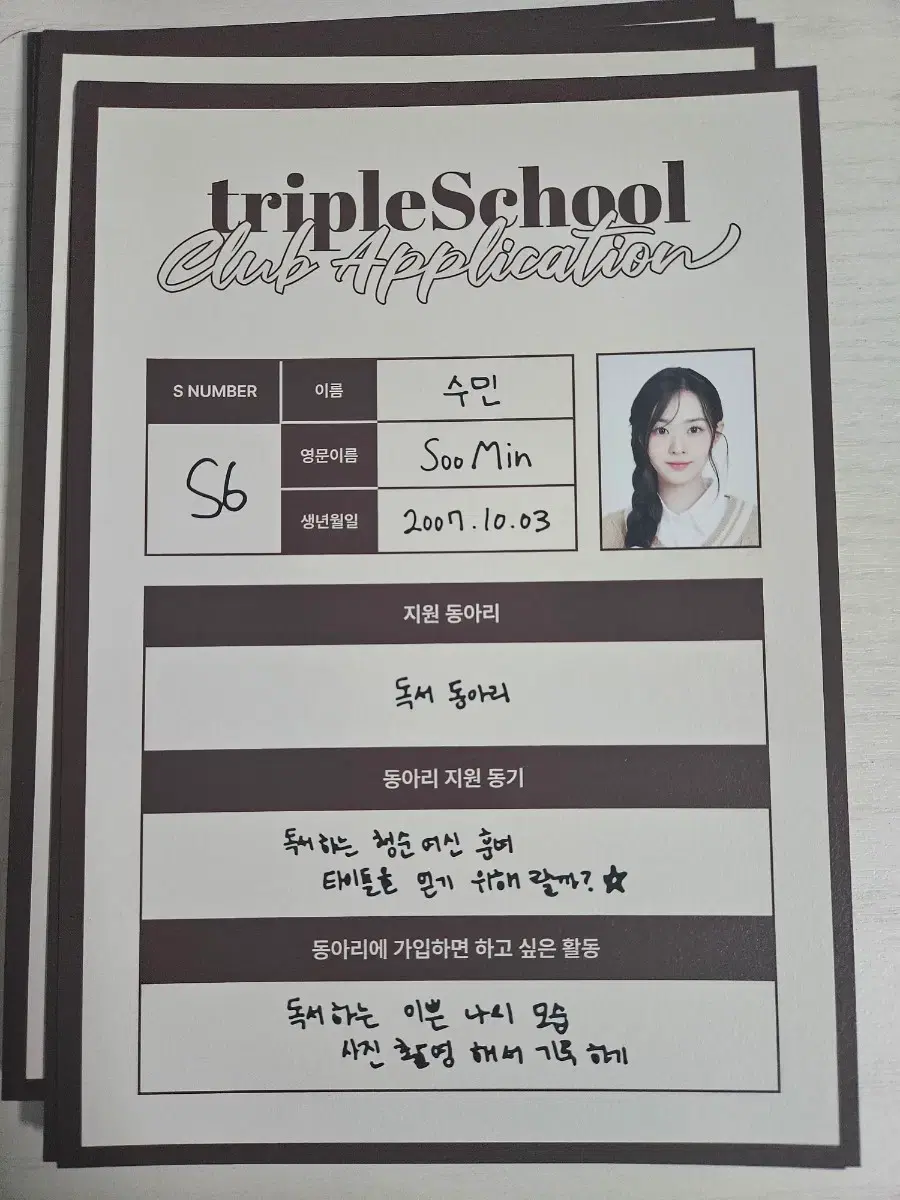 tripleSchool
Club Application
S NUMBER
이름
수민
S6
영문이름
SooMin
생년월일
2007.10.03
지원 동아리
독서 동아리
동아리 지원 동기
독서하는 청순 여신 훈녀
타이틀을 얻기 위해랄까? ☆
동아리에 가입하면 하고 싶은 활동
독서하는 이쁜 나의 모습
사진 촬영 해서 기록 하기